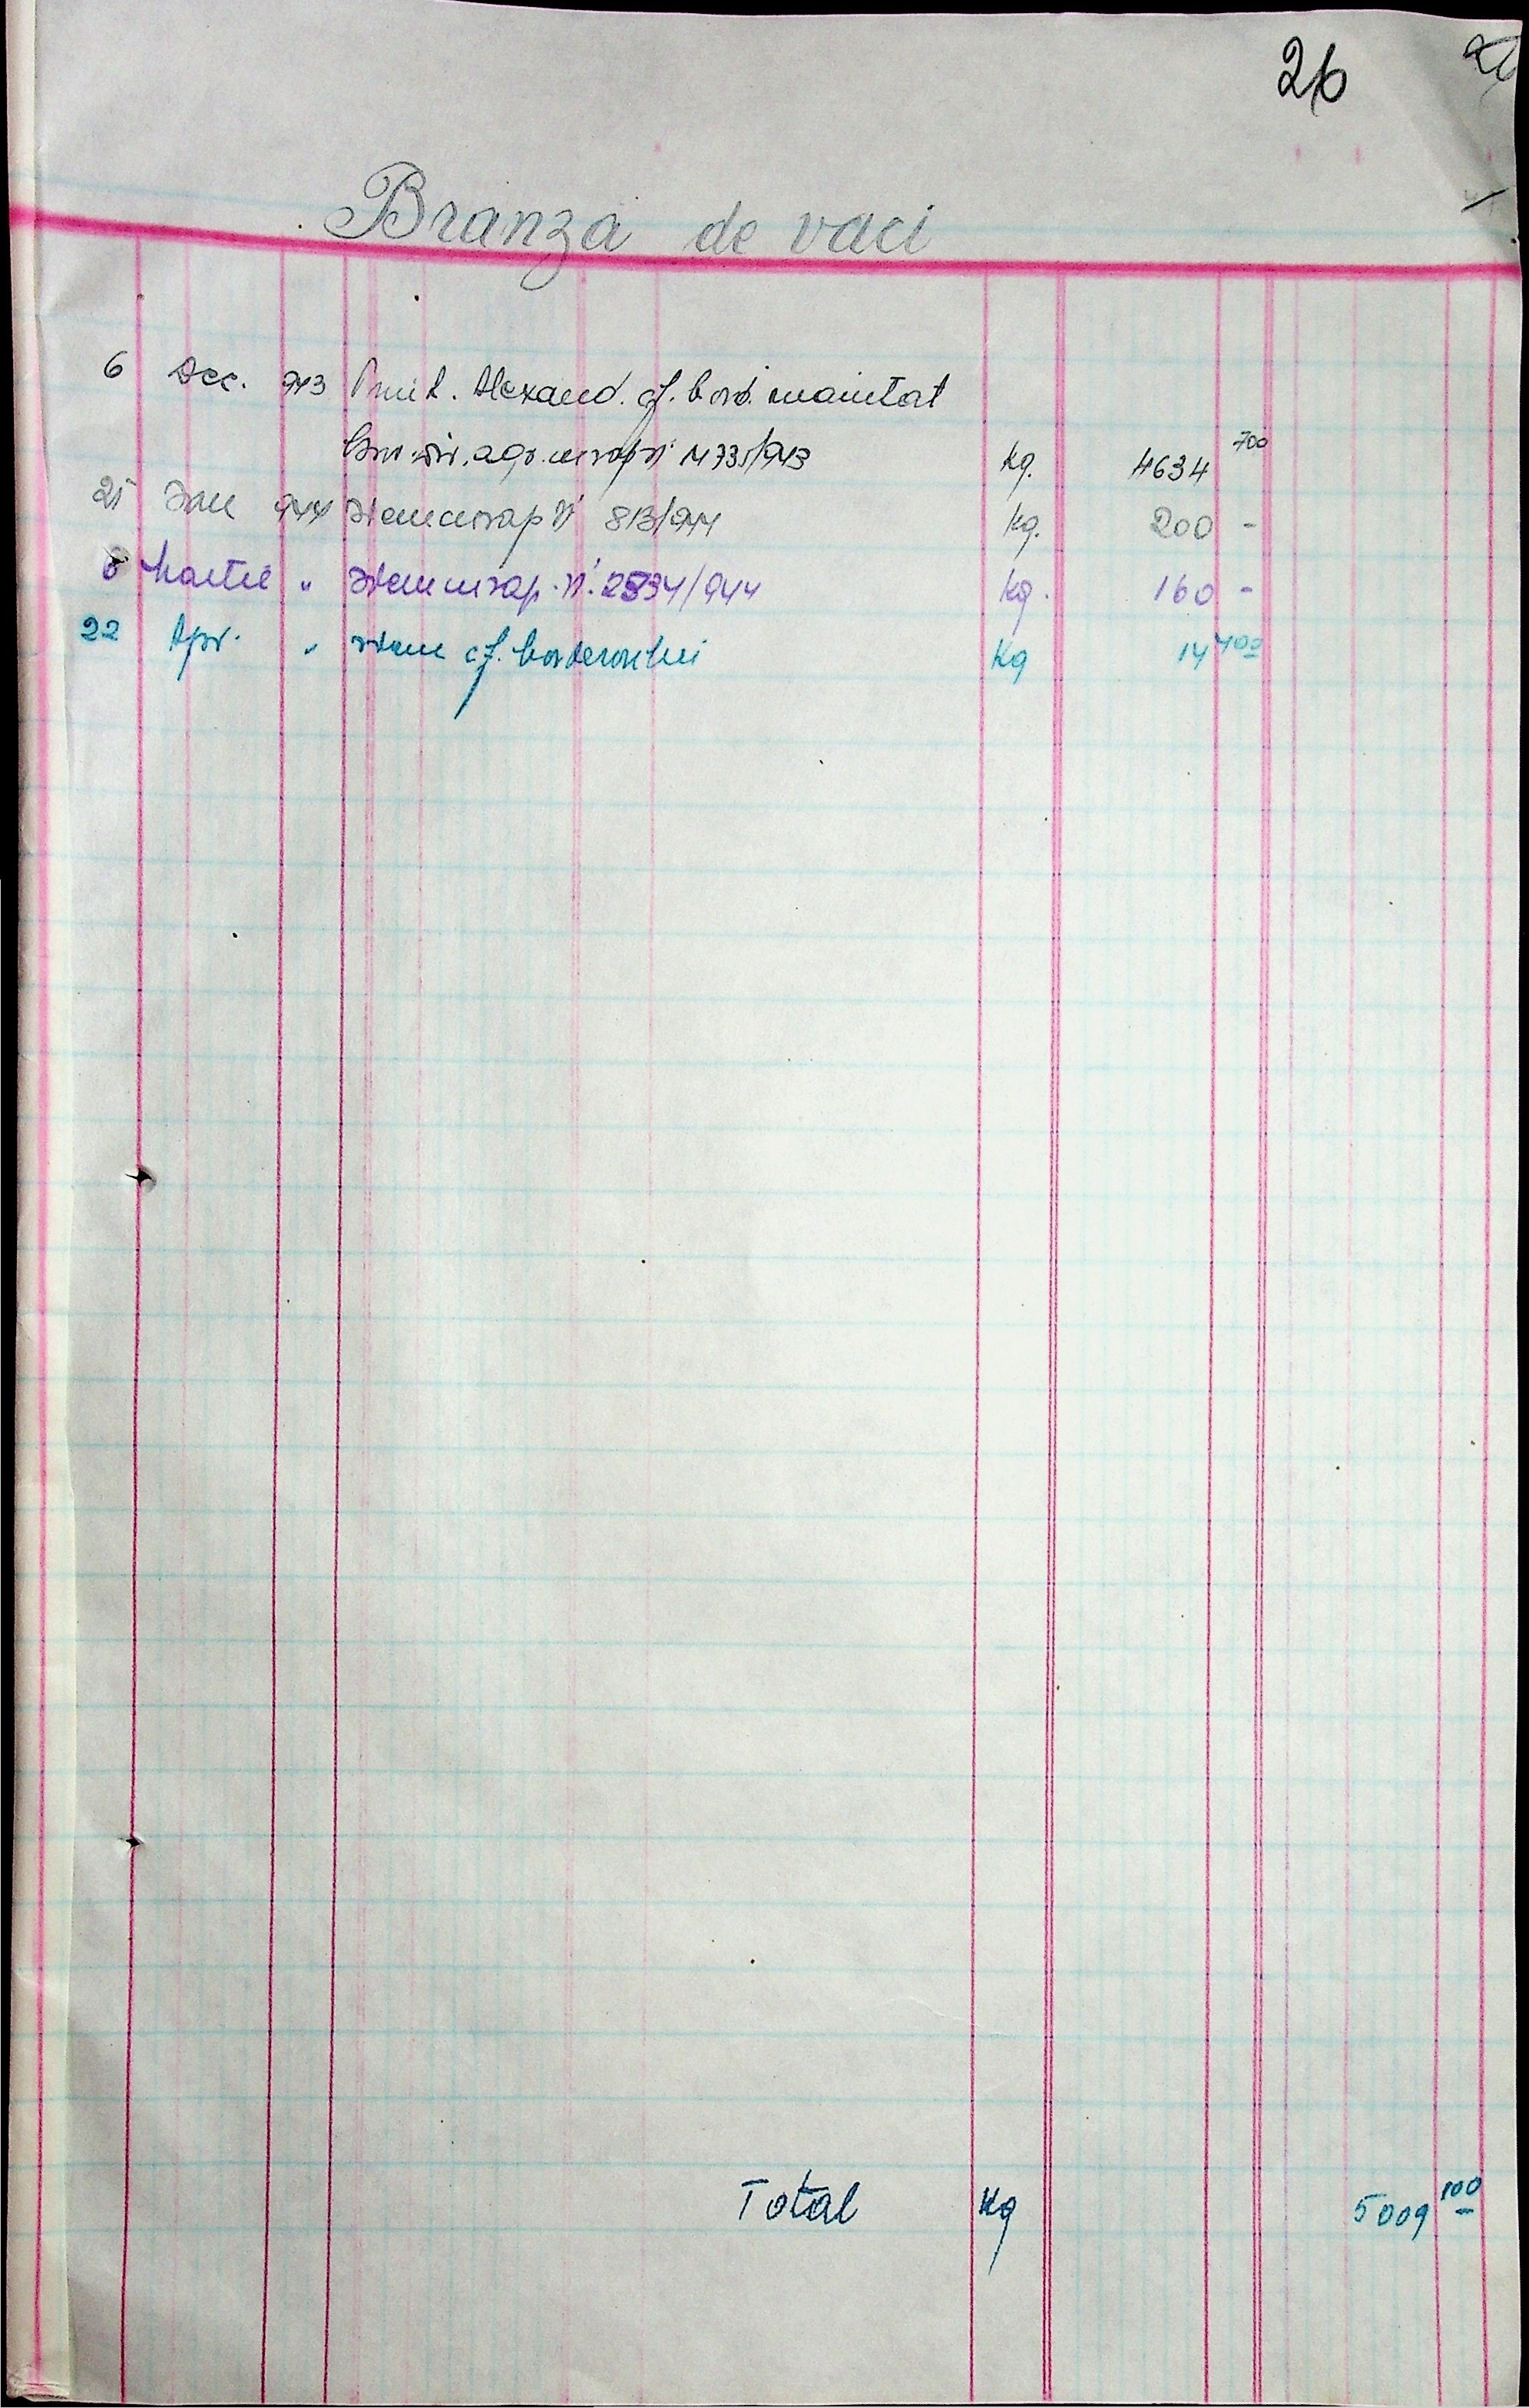 26
Branza de vaci
6 Dec. 943 Primit. Alexand. cf. bord. inaintat
agr. cu rap. N 14735/943 Kg. 4634 700
25 Ian 944 Idem cu rap N 813/944 Kg. 200 -
8 Martie " Idem cu rap. N. 2834/944 Kg. 160 -
22 Apr. " Idem cf. borderoului Kg 14 400
Total Kg 5009 100